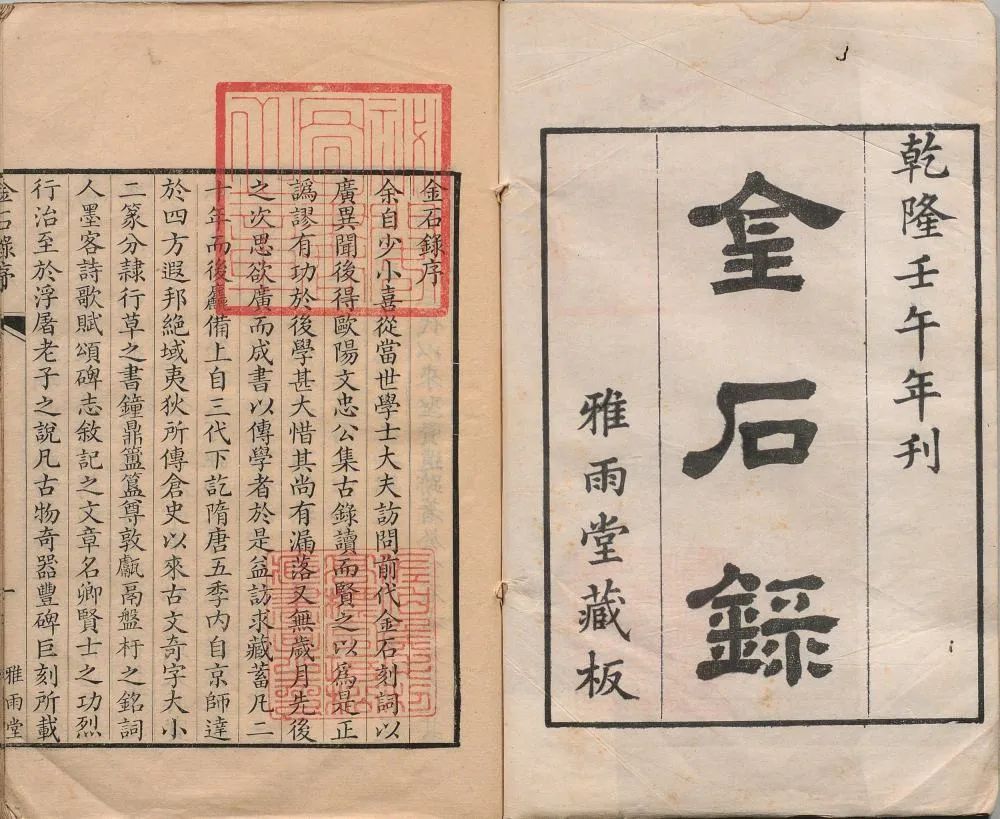 乾隆壬午年刊
金石録
雅雨堂藏板
金石錄序
余自少小喜從當世學士大夫訪問前代金石刻詞以
廣異聞後得歐陽文忠公集古錄讀而賢之以爲是正
譌謬有功於後學甚大惜其尚有漏落又無歲月先後
之次思欲廣而成書以傳學者於是益訪求藏蓄凡二
十年而後麤備上自三代下訖隋唐五季内自京師達
於四方遐邦絶域夷狄所傳倉史以來古文奇字大小
二篆分隸行草之書鐘鼎簠簋尊敦甗鬲盤杅之銘詞
人墨客詩歌賦頌碑志敘記之文章名卿賢士之功烈
行治至於浮屠老子之說凡古物奇器豐碑巨刻所載
金石錄序
一
雅雨堂